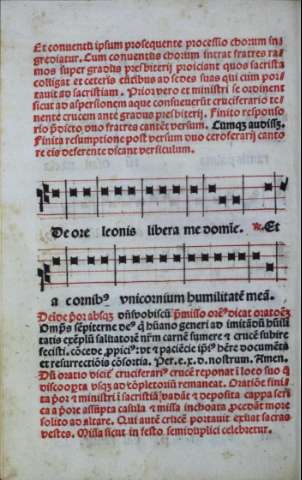 Et conventu ipsum prosequente processio chorum in
grediatur. Cum conventus chorum intrat fratres ra
mos super gradus presbiterij proiciant quos sacrista
colligat et ceteris crucibus ad sedes suas qui eum por
tauit ad sacristiam. Prior vero et ministri se ordinent
sicut ad aspersionem aque consueuerunt cruciferario te
nente crucem ante gradus presbiterij. Finito responso
rio p̄dicto duo fratres cantēt versum. Cumqȝ audissȝ.
Finita resumptione post versum duo cantore
eis deferente dicant versiculum.
De ore leonis libera me domie. ℟. Et
a cornibꝰ vnicornium humilitatē meā.
Deīde p̄or absqȝ dn̄svobiscū p̄misso orēꝰ dicat oratoēȝ
Omp̄s sēpiterne deꝰ q̇ hūano generi ad imitādū hūili
tatis exēplū saluatorē nr̄m carnē sumere ⁊ crucē subire
fecisti. cōcede ,ppiciꝰ: vt ⁊ paciēcie ip̄iꝰ h̄ere documēta
et resurrectiōis cōsortia. Per. e. x. d. nostrum. Amen.
Dū oratio dicitˀ cruciferariꝰ crucē reponat ī loco suo q̇
discoopta vsqȝ ad cōpletoriū remaneat. Oratiōe fini
ta p̄or ⁊ ministri ī sacristiā vadāt ⁊ deposita cappa seri
ca a p̄ore assūpta casula ⁊ missa inchoata ,pcedāt more
solito ad altare. Qui autē crucē portauit exuat sacras
vestes. Missa sicut in festo semiduplici celebretur.